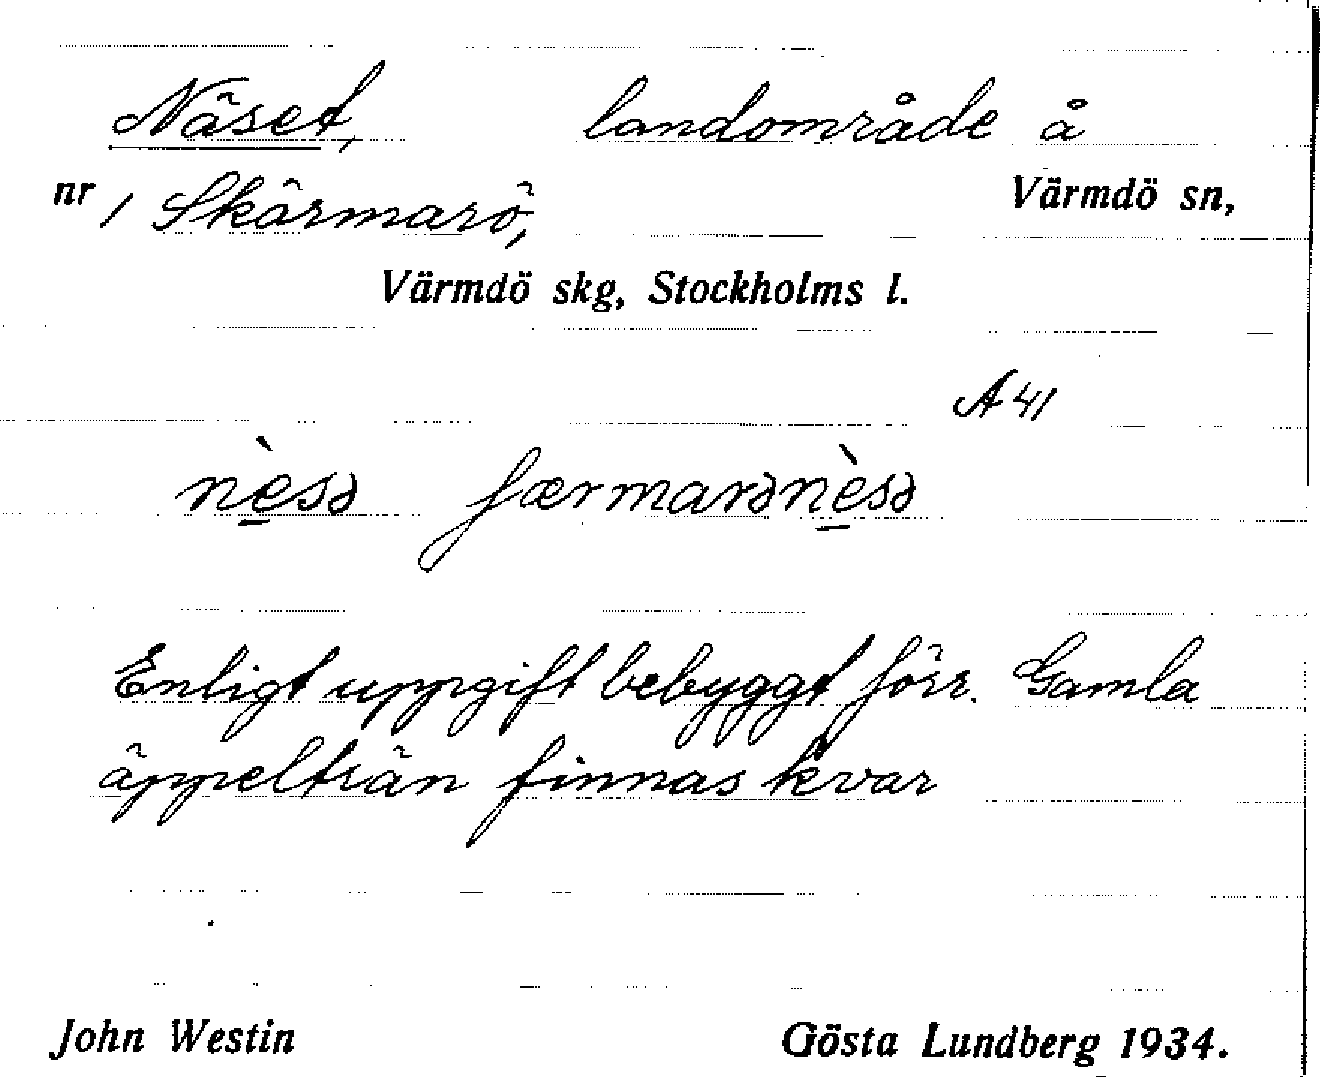 Näset, landområde å
nr 1 Skärmarö, Värmdö sn,
Värmdö skg, Stockholms l.
A 41
nè̱sə ʃærmarənè̱sə
Enligt uppgift bebyggt förr. Gamla
äppelträn finnas kvar
John Westin Gösta Lundberg 1934.